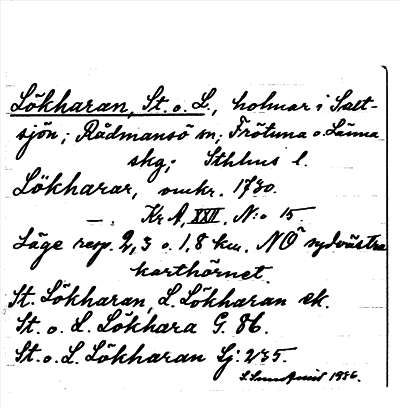 Lökharan, St. o. L., holmar i Salt-
sjön; Rådmansö sn; Frötuna o. Länna
skg; Sthlms l.
Lökharar, omkr. 1730.
— Kr A, XXII, N:o 15.
Läge resp. 2,3 o. 1,8 km. NÖ sydvästra
karthörnet.
St. Lökharan, L. Lökharan ek.
St. o. L. Lökhara G. 86.
St. o. L. Lökharan Sj: 235.
1936.